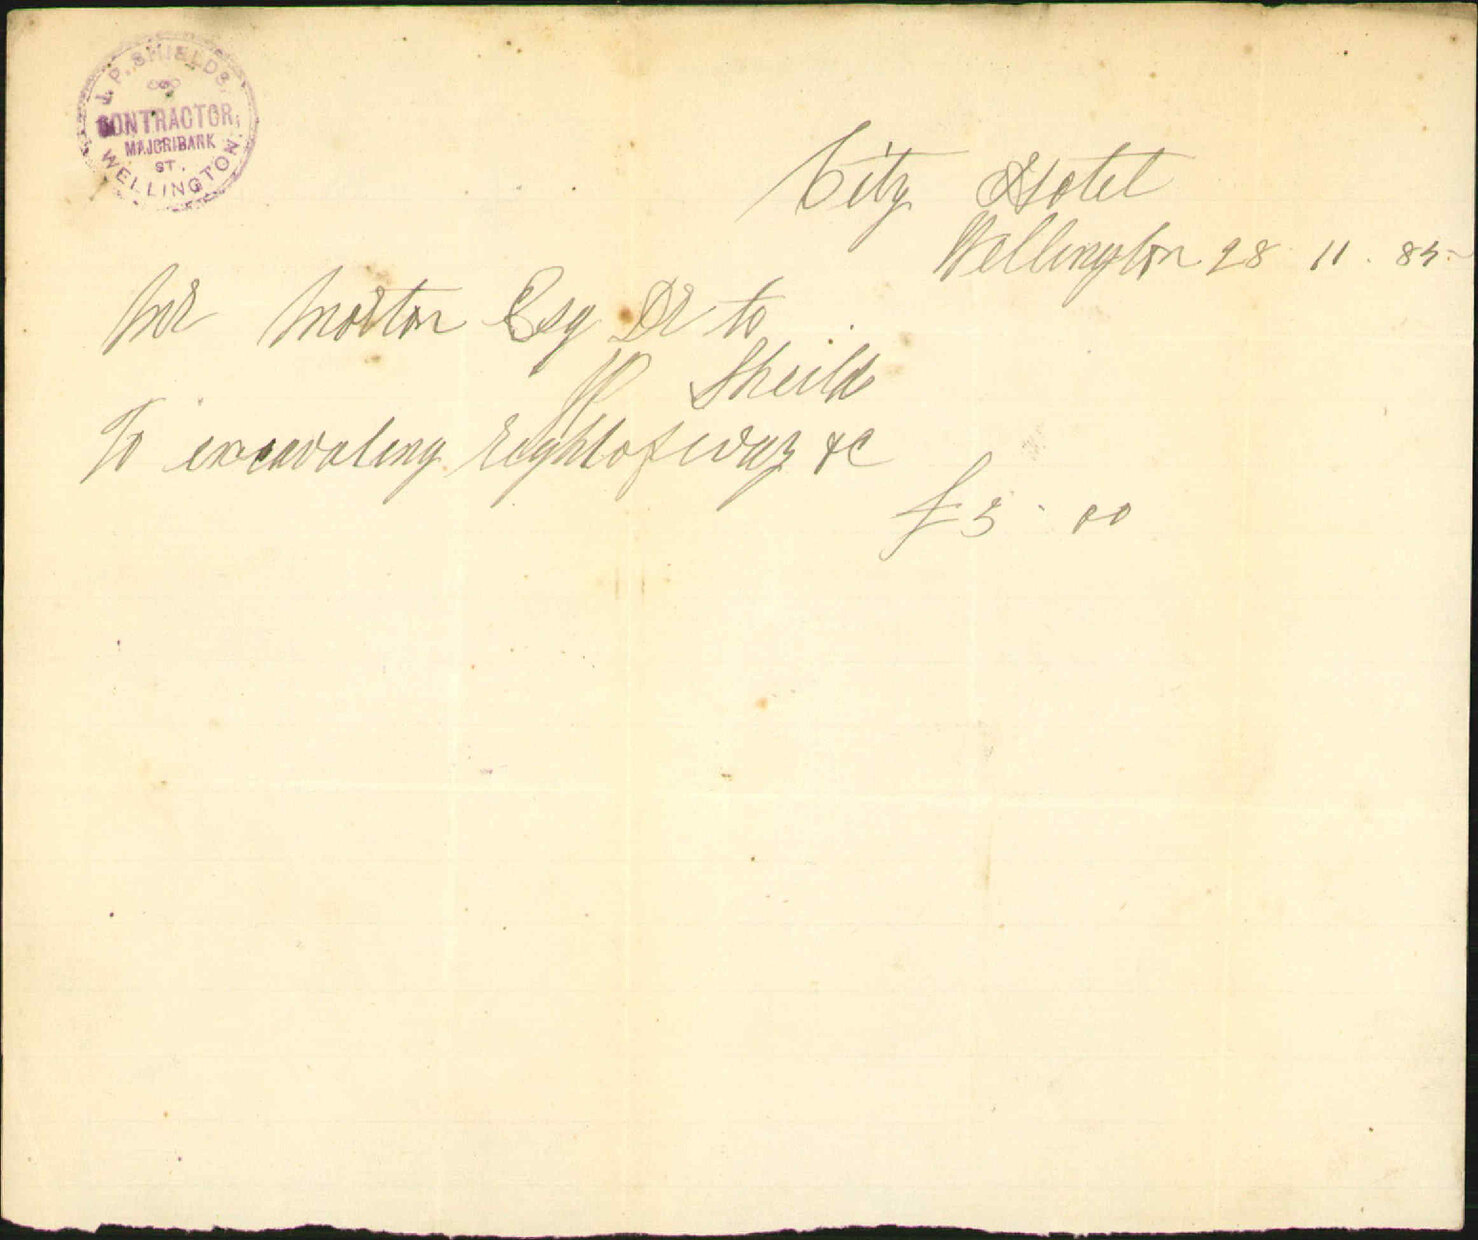 J. P. SHIELDS,
CONTRACTOR,
MAJORIBANK
ST.
WELLINGTON.
City Hotel
Wellington 28 11. 85
Mr Morton Esq Dr to
JP Sheilds
To excavating right of way &c
£5 . 00